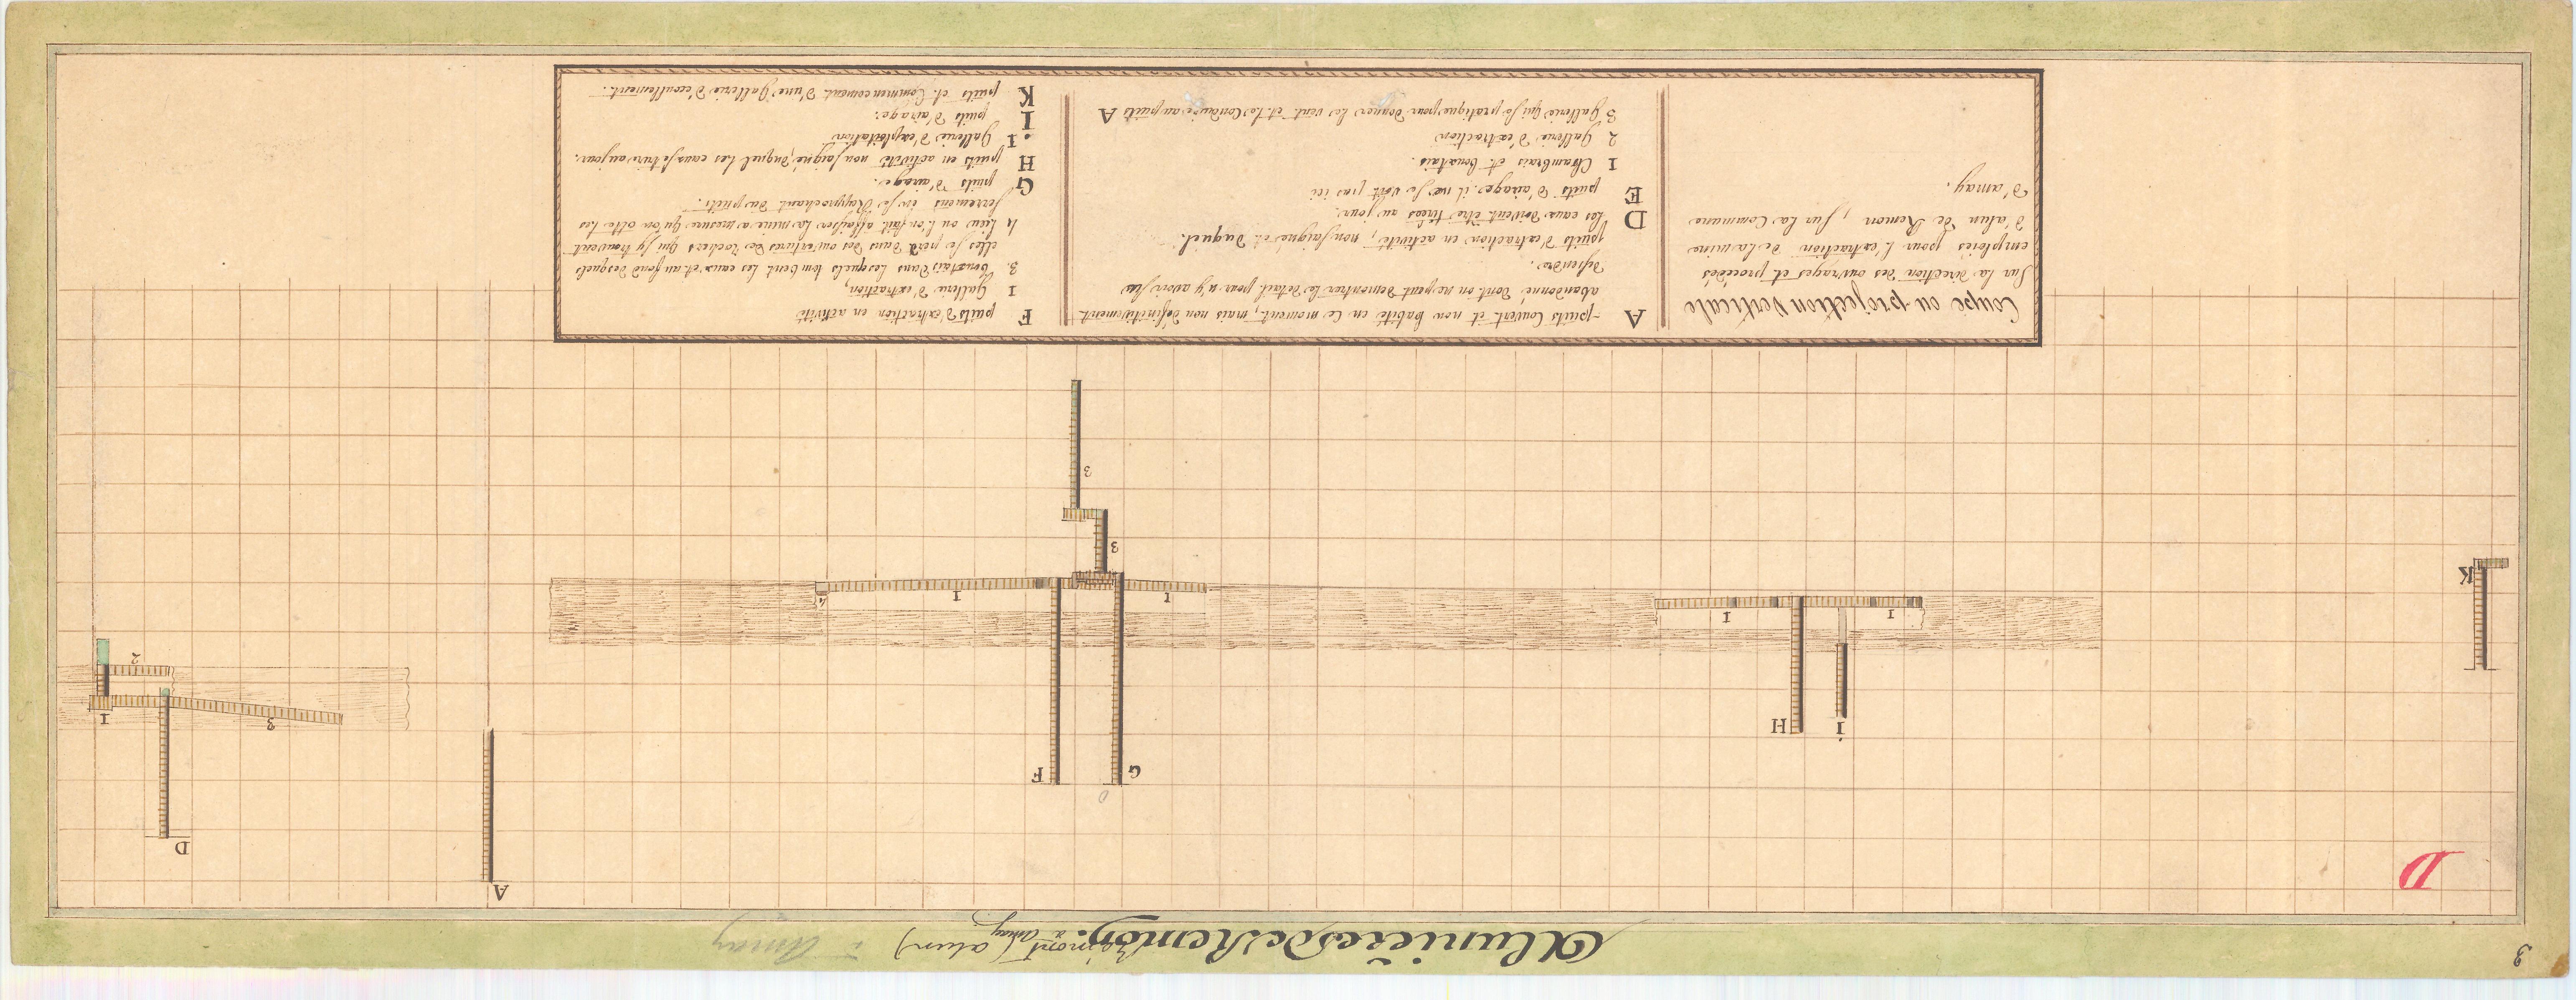 3
Alunières De Remon.
Ramont (alun)
à Amay
: Amay
D
Coupe ou projection verticale
Sur la direction des ouvrages et procédés
emploiés pour l'extraction de la mine
d'alun de Remon, sur la Commune
d'amay.
A puits Couvert et non habité en ce moment, mais non définitivement
abandonné dont on ne peut demontrer le détail pour n'y avoir sçu
descendre.
D puits d'extraction en activité, non saigné et duquel
les eaux doivent être tirées au jour.
E puits d'airage. il ne se voit pas ici
1 Chambrais et bouxtais
2 Gallerie d'extraction
3 Gallerie qui se pratique pour donner le vent et la Conduire au puits A
F puits d'extraction en activité
1 Gallerie d'extraction,
3. bouxtais dans lesquels tombent les eaux et au fond desquels
elles se perdent dans des ouvertures de rochers qui s'y trouvent
4 lieu ou l'on fait affaisser la mine a mesure qu'on otte les
ferremens en se Rapprochant du puits.
G puits d'airage.
H puits en activité non saigné, duquel les eaux se tirent au jour.
1 Gallerie d'exploitation
I puits d'airage.
K puits et Commencement d'une Gallerie d'ecoullement.
A
D
3
1
2
F
G
1
1
4
3
3
H
i
1
1
K